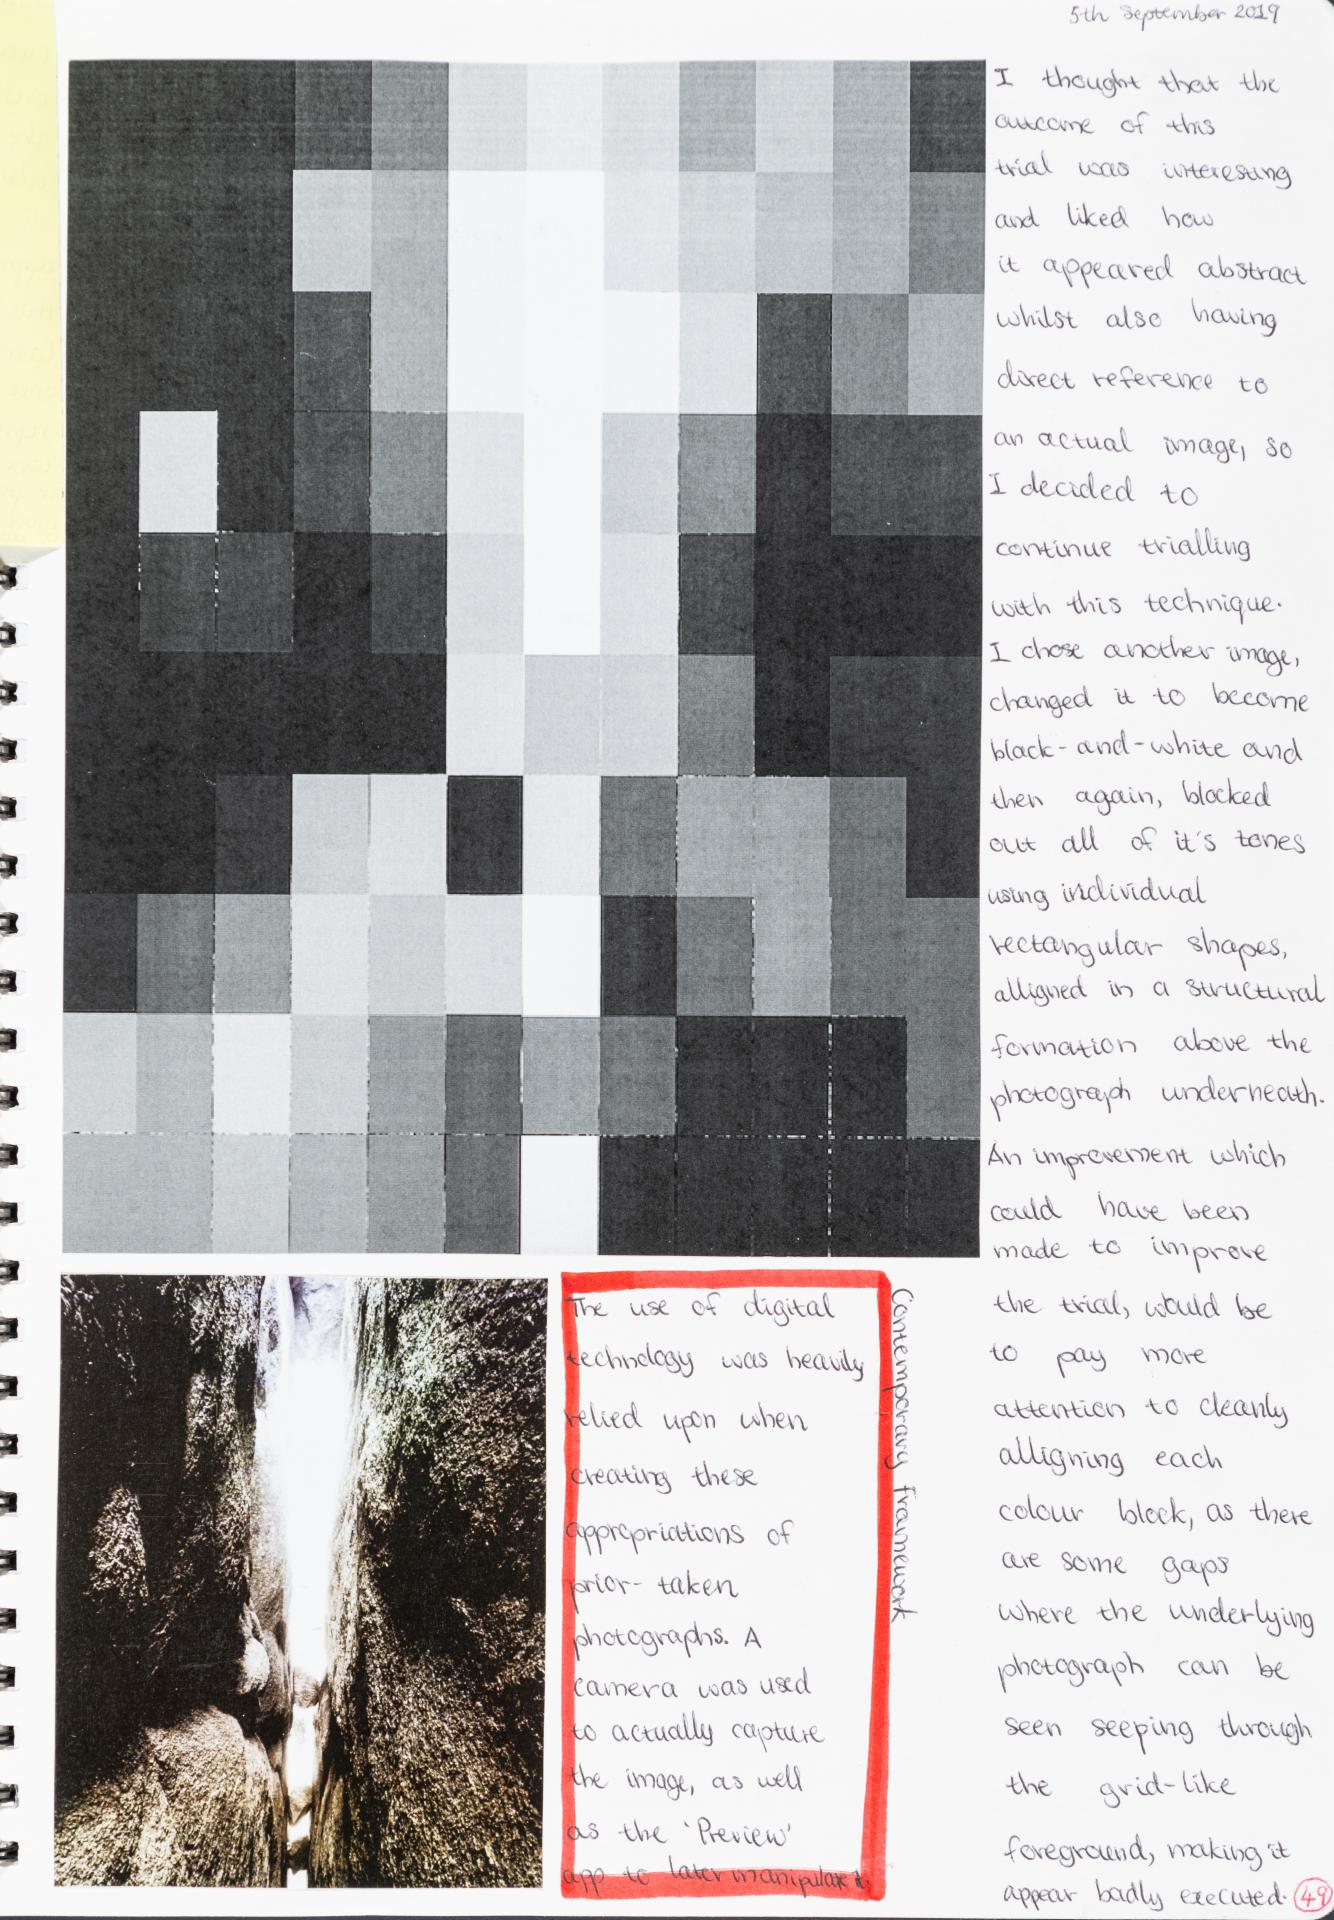 5th September 2019
I thought that the
outcome of this
trial was interesting
and liked how
it appeared abstract
whilst also having
direct reference to
an actual image, so
I decided to
continue trialling
with this technique.
I chose another image,
changed it to become
black-and-white and
then again, blocked
out all of it's tones
using individual
rectangular shapes,
alligned in a structural
formation above the
photograph underneath.
An improvement which
could have been
made to improve
the trial, would be
to pay more
attention to cleanly
alligning each
colour block, as there
are some gaps
where the underlying
photograph can be
seen seeping through
the grid-like
foreground, making it
appear badly executed.
The use of digital
technology was heavily
relied upon when
creating these
appropriations of
prior-taken
photographs. A
camera was used
to actually capture
the image, as well
as the 'Preview'
app to later manipulate it.
Contemporary Framework
49